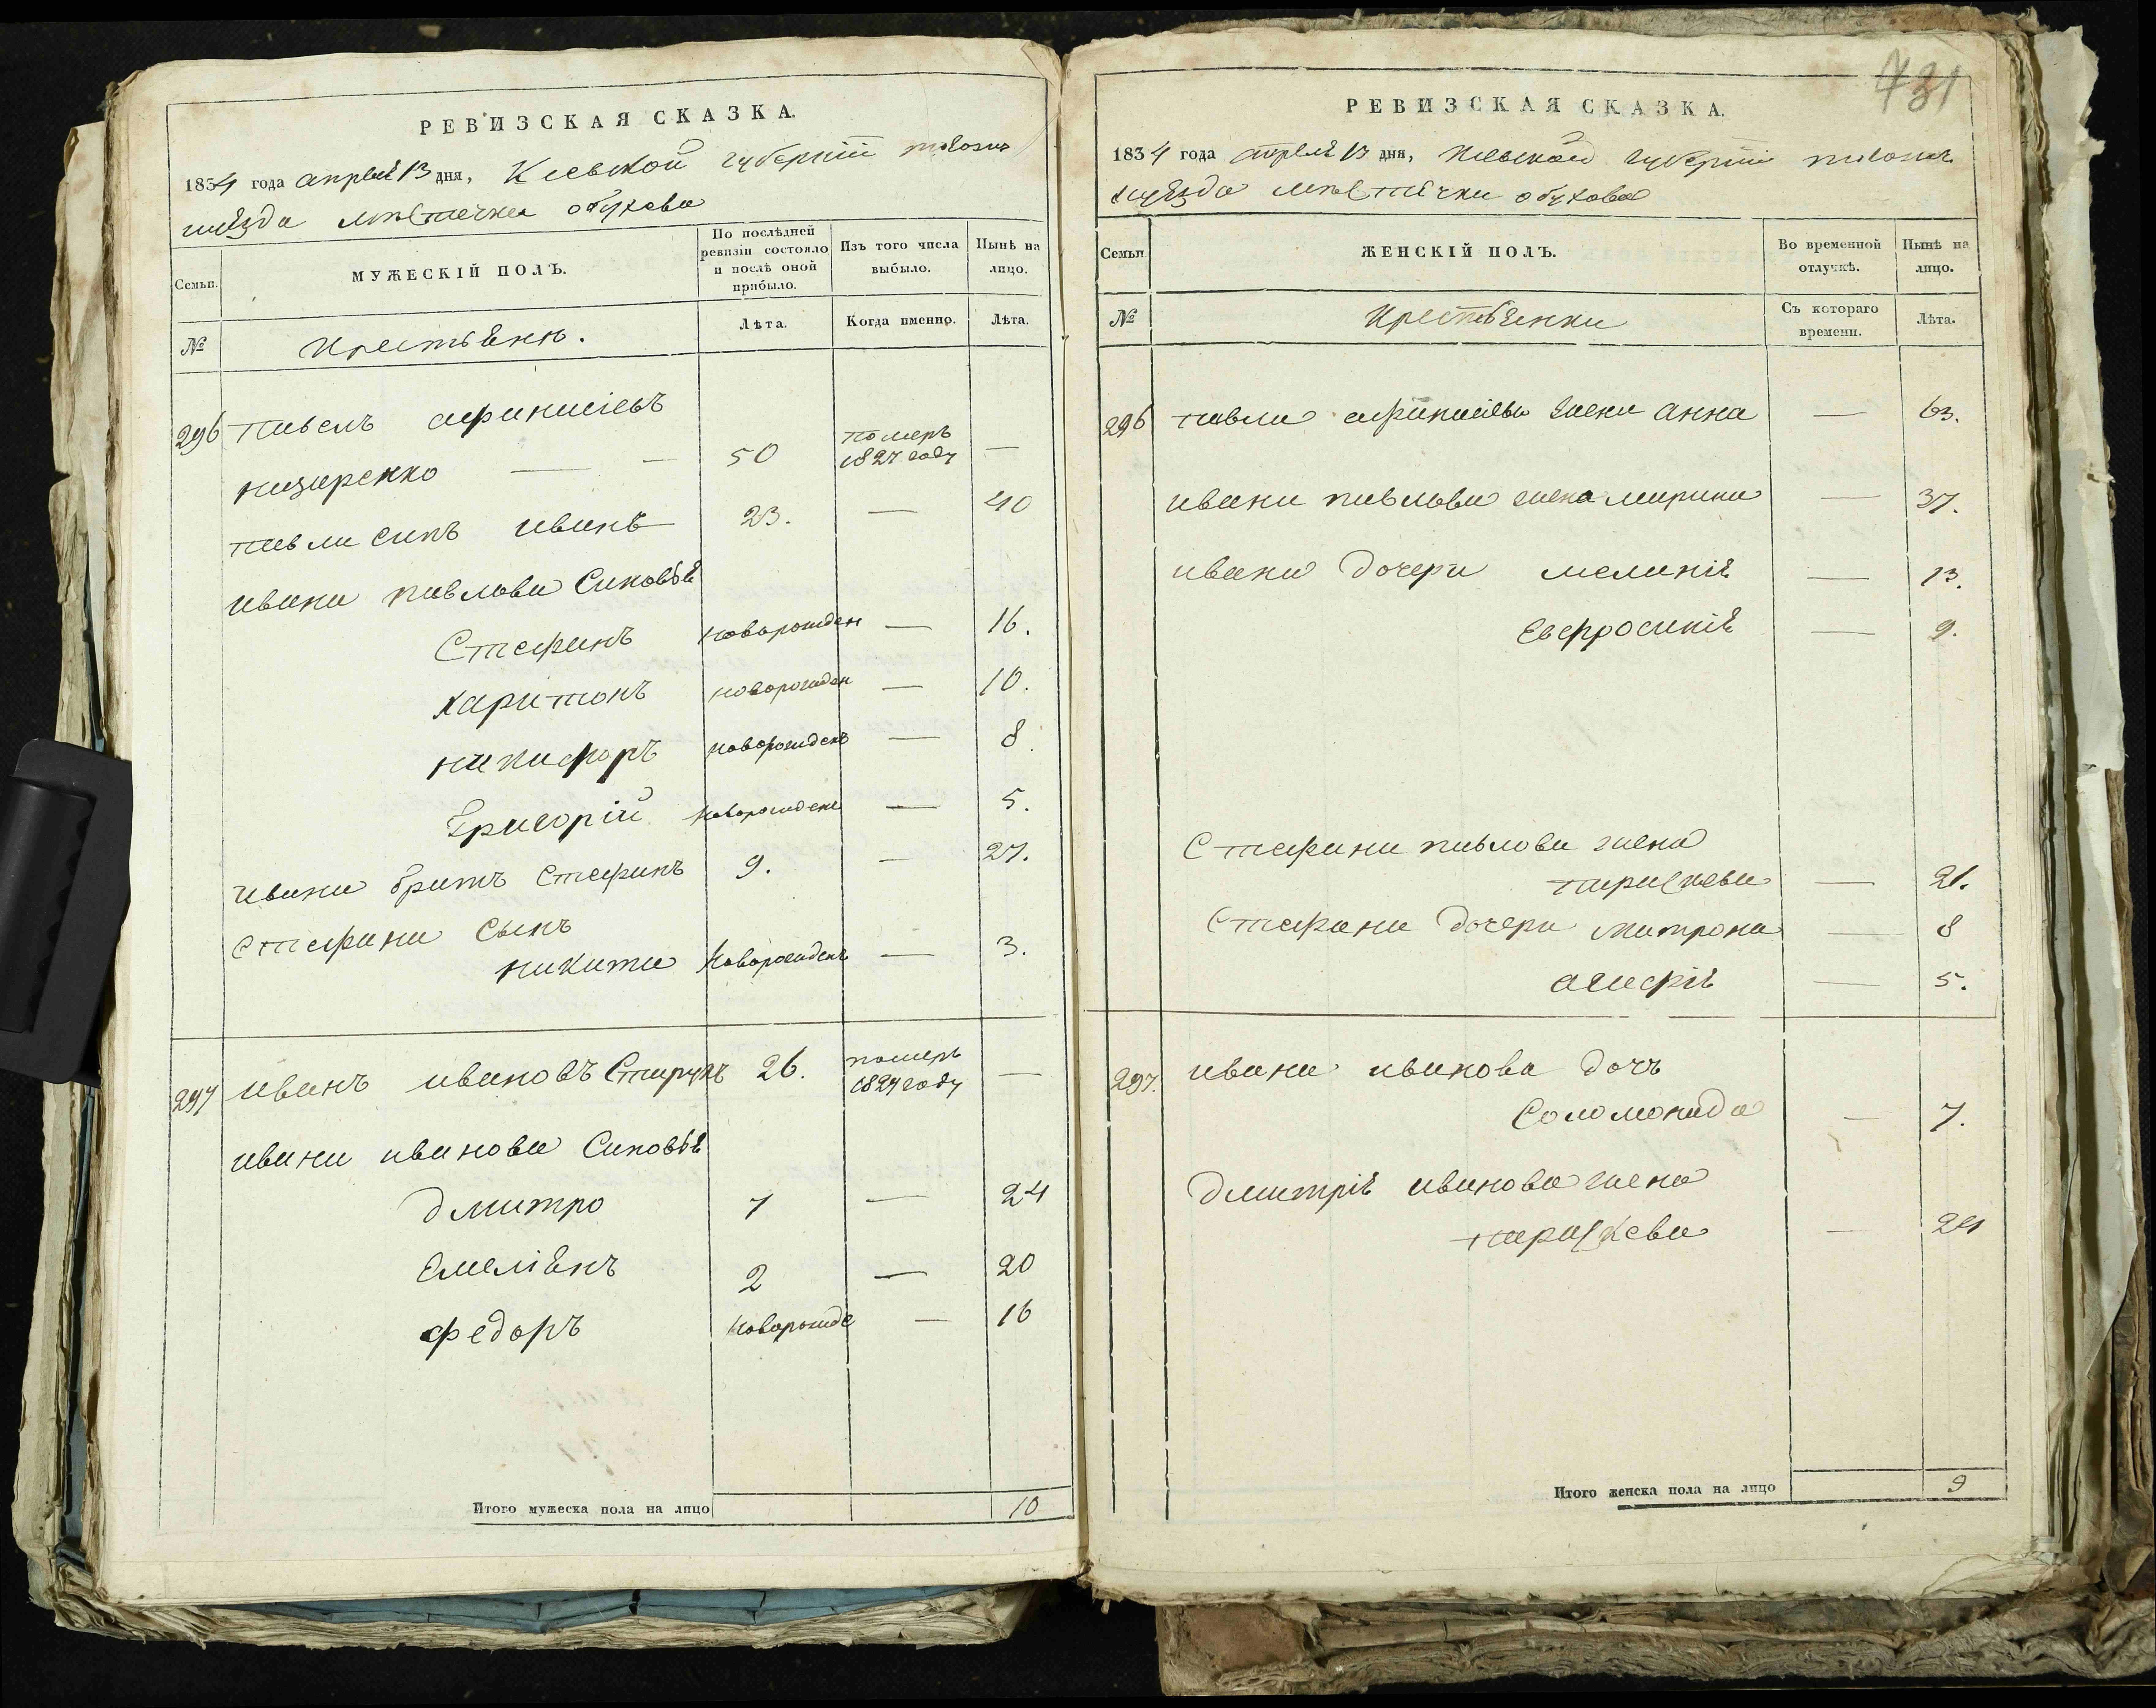 РЕВИЗСКАЯ СКАЗКА.
1834 года апреля 13 дня, Киевской губернии того жъ
уезда местечка обухова
Семьи.
МУЖЕСКІЙ ПОЛЪ.
По послѣдней ревизіи состояло и послѣ оной прибыло.
Изъ того числа выбыло.
Нынѣ на лицо.
№
Крестьяне.
Лѣта.
Когда именно.
Лѣта.
296 павелъ афанасіевъ
назаренко — — 50 померъ 1827 году —
павла синъ иванъ 23. — 40
ивана павлова Синовья
Стефанъ новорожден — 16.
харитонъ новорожден — 10.
никифоръ новорожденъ — 8.
Григорій новорожденъ — 5.
ивана братъ Стефанъ 9. — 27.
Стефана Сынъ
никита новорожденъ — 3.
297 иванъ ивановъ 26. померъ 1827 году —
ивана иванова Синовья
дмитро 7 — 24
Емеліянъ 2 — 20
федоръ новорожде — 16
Итого мужеска пола на лицо 10
731
РЕВИЗСКАЯ СКАЗКА.
1834 года апреля 13 дня, Киевской губерніи того жъ
уезда местечка обухова
Семьи.
ЖЕНСКІЙ ПОЛЪ.
Во временной отлучкѣ.
Нынѣ на лицо.
№
Крестьянки
Съ котораго времени.
Лѣта.
296 павла афанасіева жена анна — 63.
ивана павлова жена марина — 37.
ивана дочери меланія — 13.
Евфросинія — 9.
Стефана павлова жена
параскева — 21.
Стефана дочери матрона — 8
агафія — 5.
297. ивана иванова дочъ
Соломонида — 7.
дмитрія иванова жена
параскева — 24
Итого женска пола на лицо 9